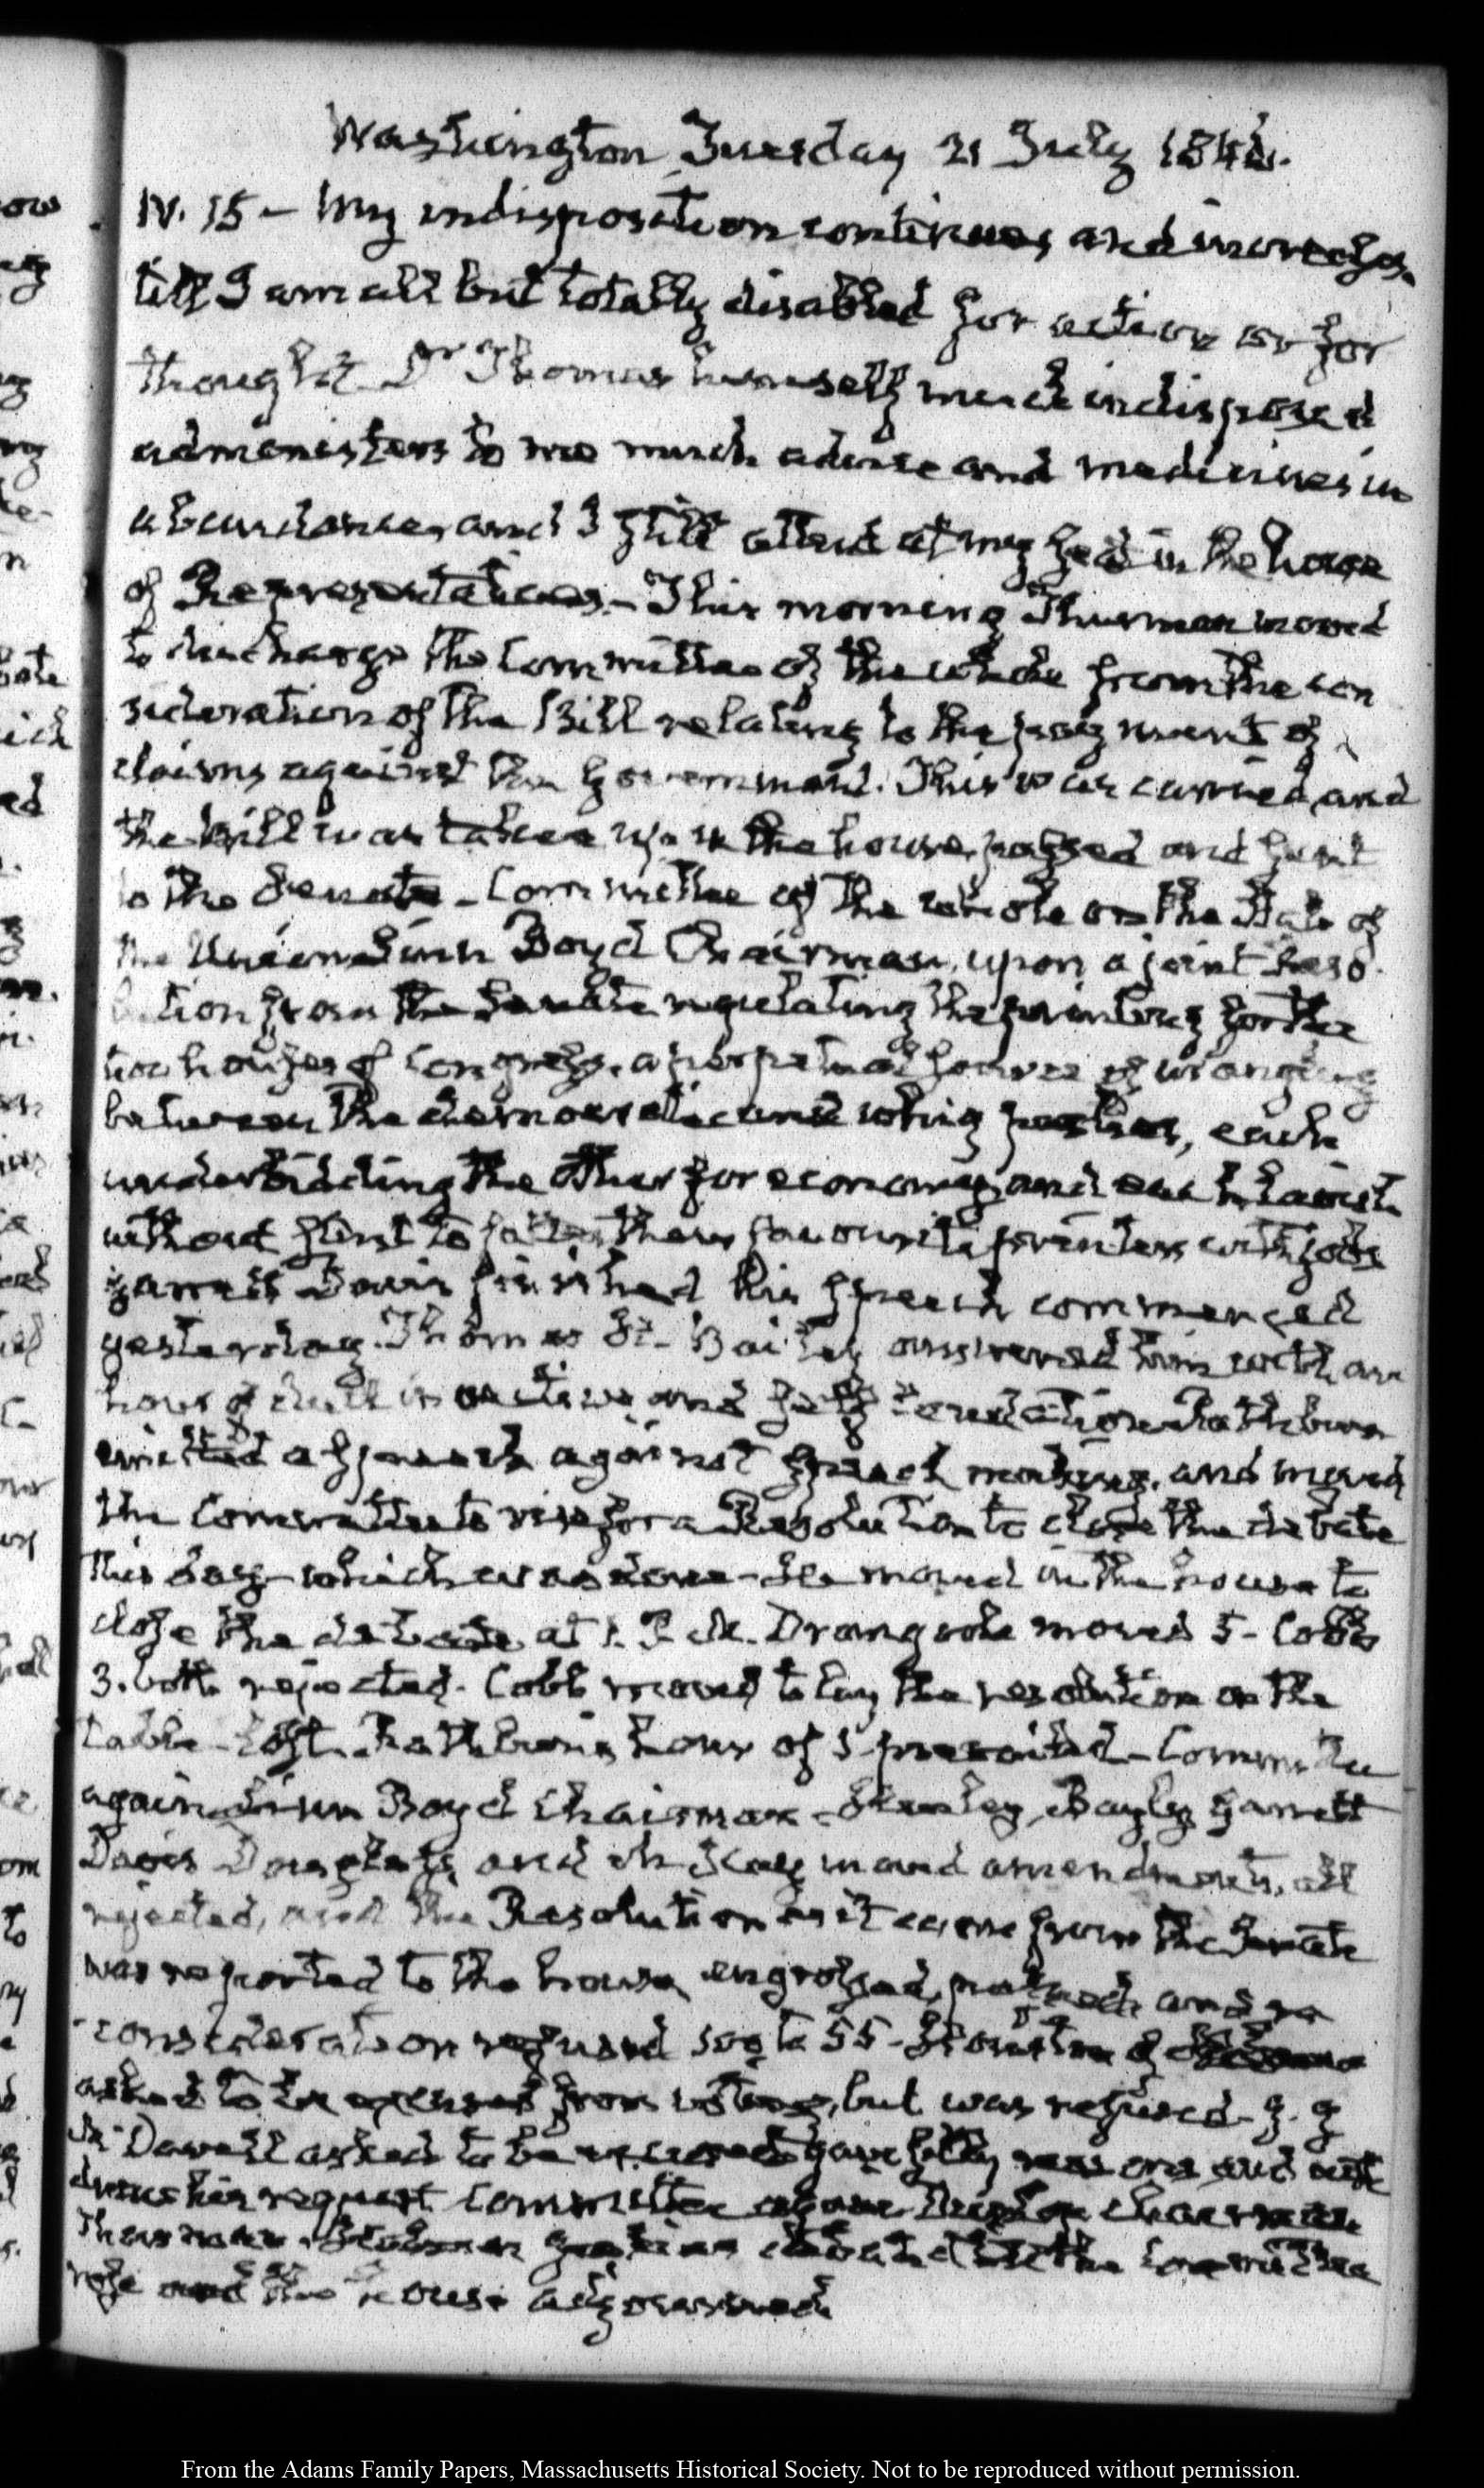 Washington Tuesday 21 July 1846.
IV. 15 – My indisposition continues and increases.
till I am all but totally disabled for action or for
thought. Dr Thomas himself much indisposed
administers to me much advice and medicines in
abundance, and I still attend at my seat in the house
of Representatives – This morning Thurman moved
to discharge the Committee of the whole from the con
sideration of the Bill relating to the payment of
claims against the Government. This was carried, and
the bill was taken up in the house, passed and sent
to the Senate – Committee of the whole on the State of
the Union. Linn Boyd Chairman, upon a joint Reso
lution from the Senate regulating the printing for the
two houses of Congress, a perpetual source of wrangling
between the democratic and whig parties, each
underbidding the other for economy, and each lavish
without stint to fatten their favourite printers with jobs
Garrett Davis finished his speech commenced
yesterday. Thomas H. Bayley answered him with an
hour of dull invective and self Rathbun
a speech against speech making, and moved
the Committee to rise for a Resolution to close the debate
this day – which was done – He moved in the house to
close the debate at 1. P.M. Dromgoole moved 5 – Cobb
3. both rejected. Cobb moved to lay the resolution on the
table – lost. Rathbun's hour of 1 prevailed – Committee
again. Linn Boyd Chairman – Stanley, Bayly, Garrett
Davis Douglass, and McClay moved amendments, all
rejected, and the Resolution as it came from the Senate
was reported to the house, engrossed, passed and re
consideration refused 109 to 55 – Houston of
asked to be excused from voting, but was refused – J. J.
McDowell asked to be excused gave silly reasons and with
drew his request Committee again chairman
Thurman, debated till the Committee
rose and the house adjourned